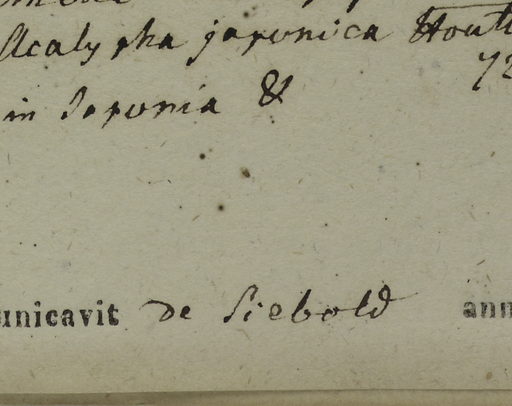 Acalypha japonica Houtt
72
in Japonia &
unicavit de Siebold ann